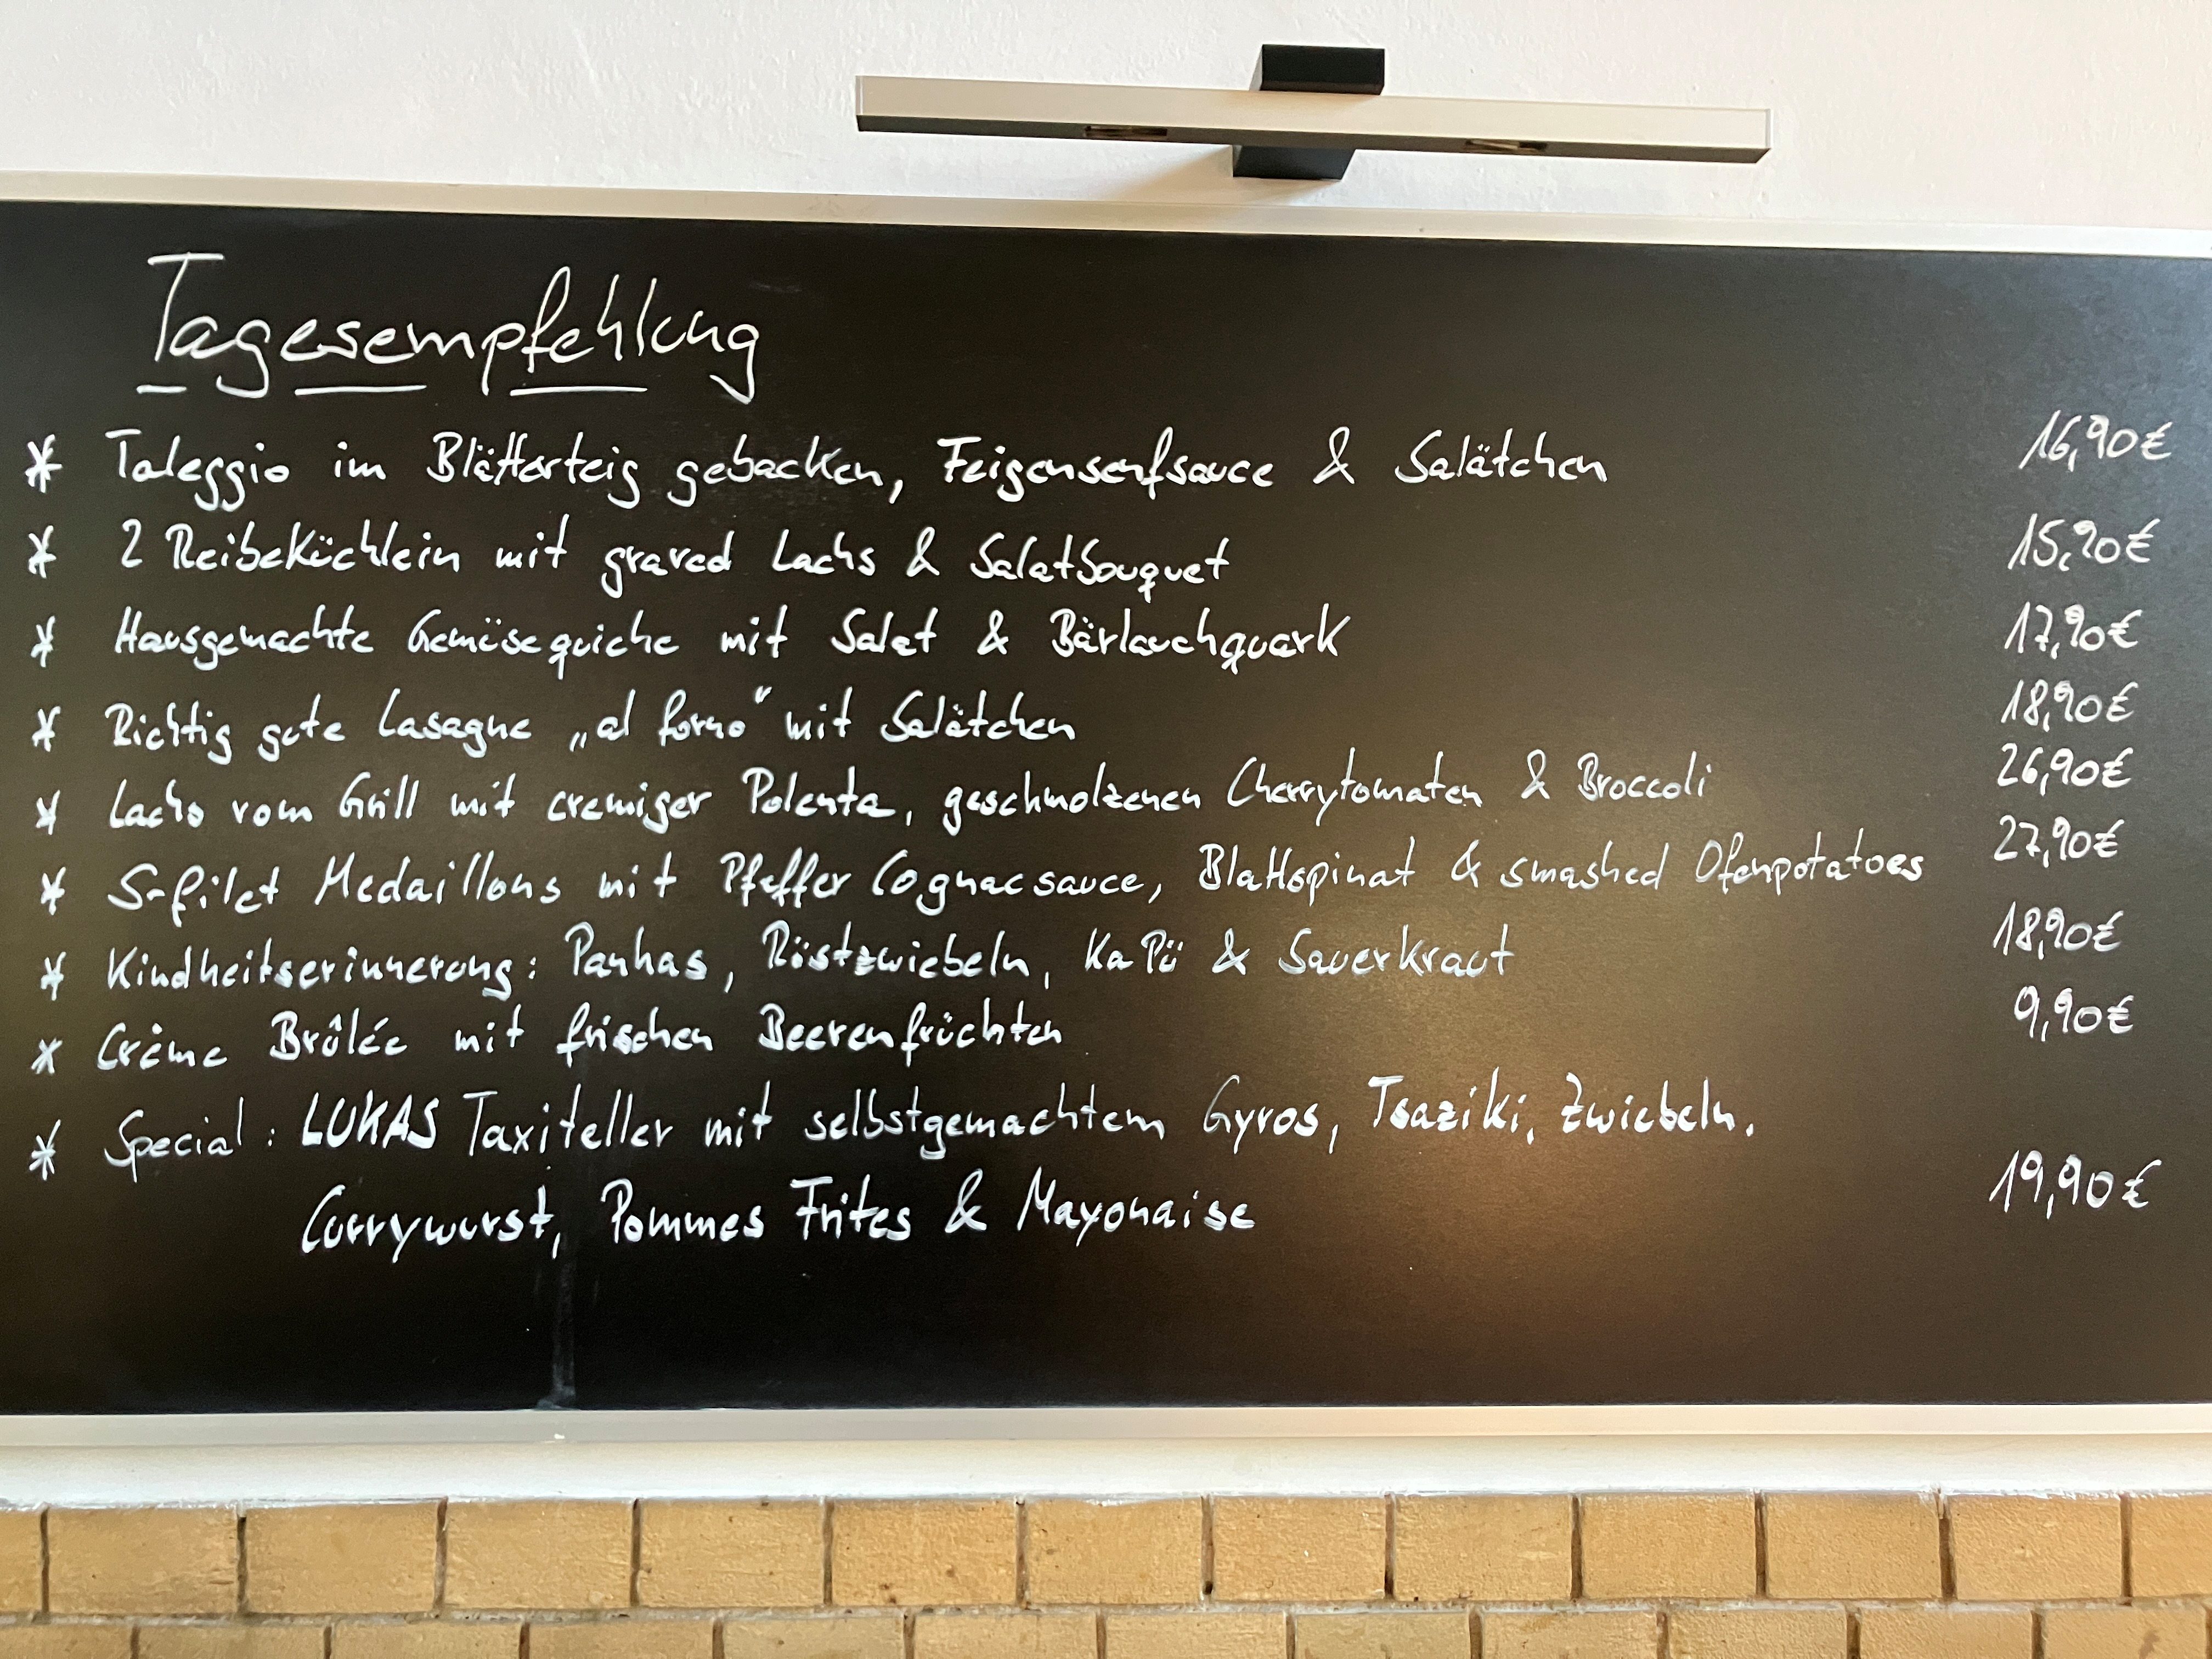 Tagesempfehlung
* Taleggio im Blätterteig gebacken, Feigensenfsauce & Salätchen 16,90€
* 2 Reibeküchlein mit graved Lachs & Salatbouquet 15,90€
* Hausgemachte Gemüsequiche mit Salat & Bärlauchquark 17,90€
* Richtig gute Lasagne „al forno“ mit Salätchen 18,90€
* Lachs vom Grill mit cremiger Polenta, geschmolzenen Cherrytomaten & Broccoli 26,90€
* S-filet Medaillons mit Pfeffer Cognacsauce, Blattspinat & smashed Ofenpotatoes 27,90€
* Kindheitserinnerung: Panhas, Röstzwiebeln, KaPü & Sauerkraut 18,90€
* Crème Brûlée mit frischen Beerenfrüchten 9,90€
* Special: LUKAS Taxiteller mit selbstgemachtem Gyros, Tsaziki, Zwiebeln,
Currywurst, Pommes Frites & Mayonaise 19,90€